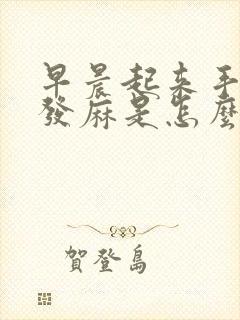 早晨起来手
發麻是怎麼
賀登島